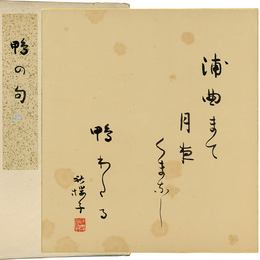 鴨の句
浦曲まで
月夜
くまなし
鴨わたる
秋櫻子